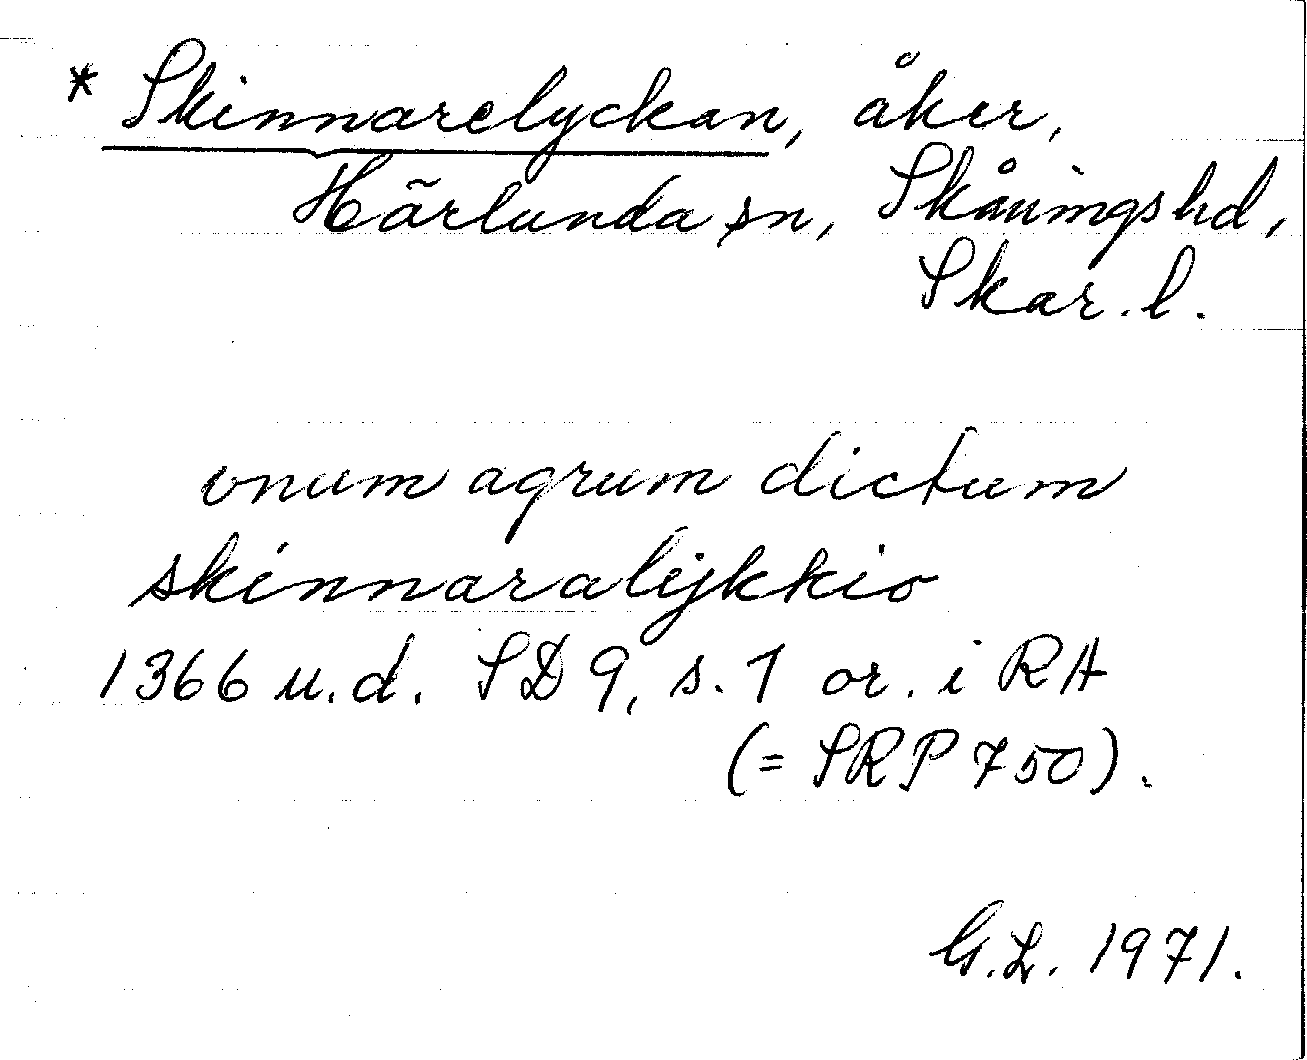 * Skinnarelyckan, åker,
Härlunda sn, Skånings hd,
Skar. l.
vnum agrum dictum
skinnaralijkkio
1366 u.d. SD 9, s. 1 or. i RA
(= SRP 750).
G.L. 1971.